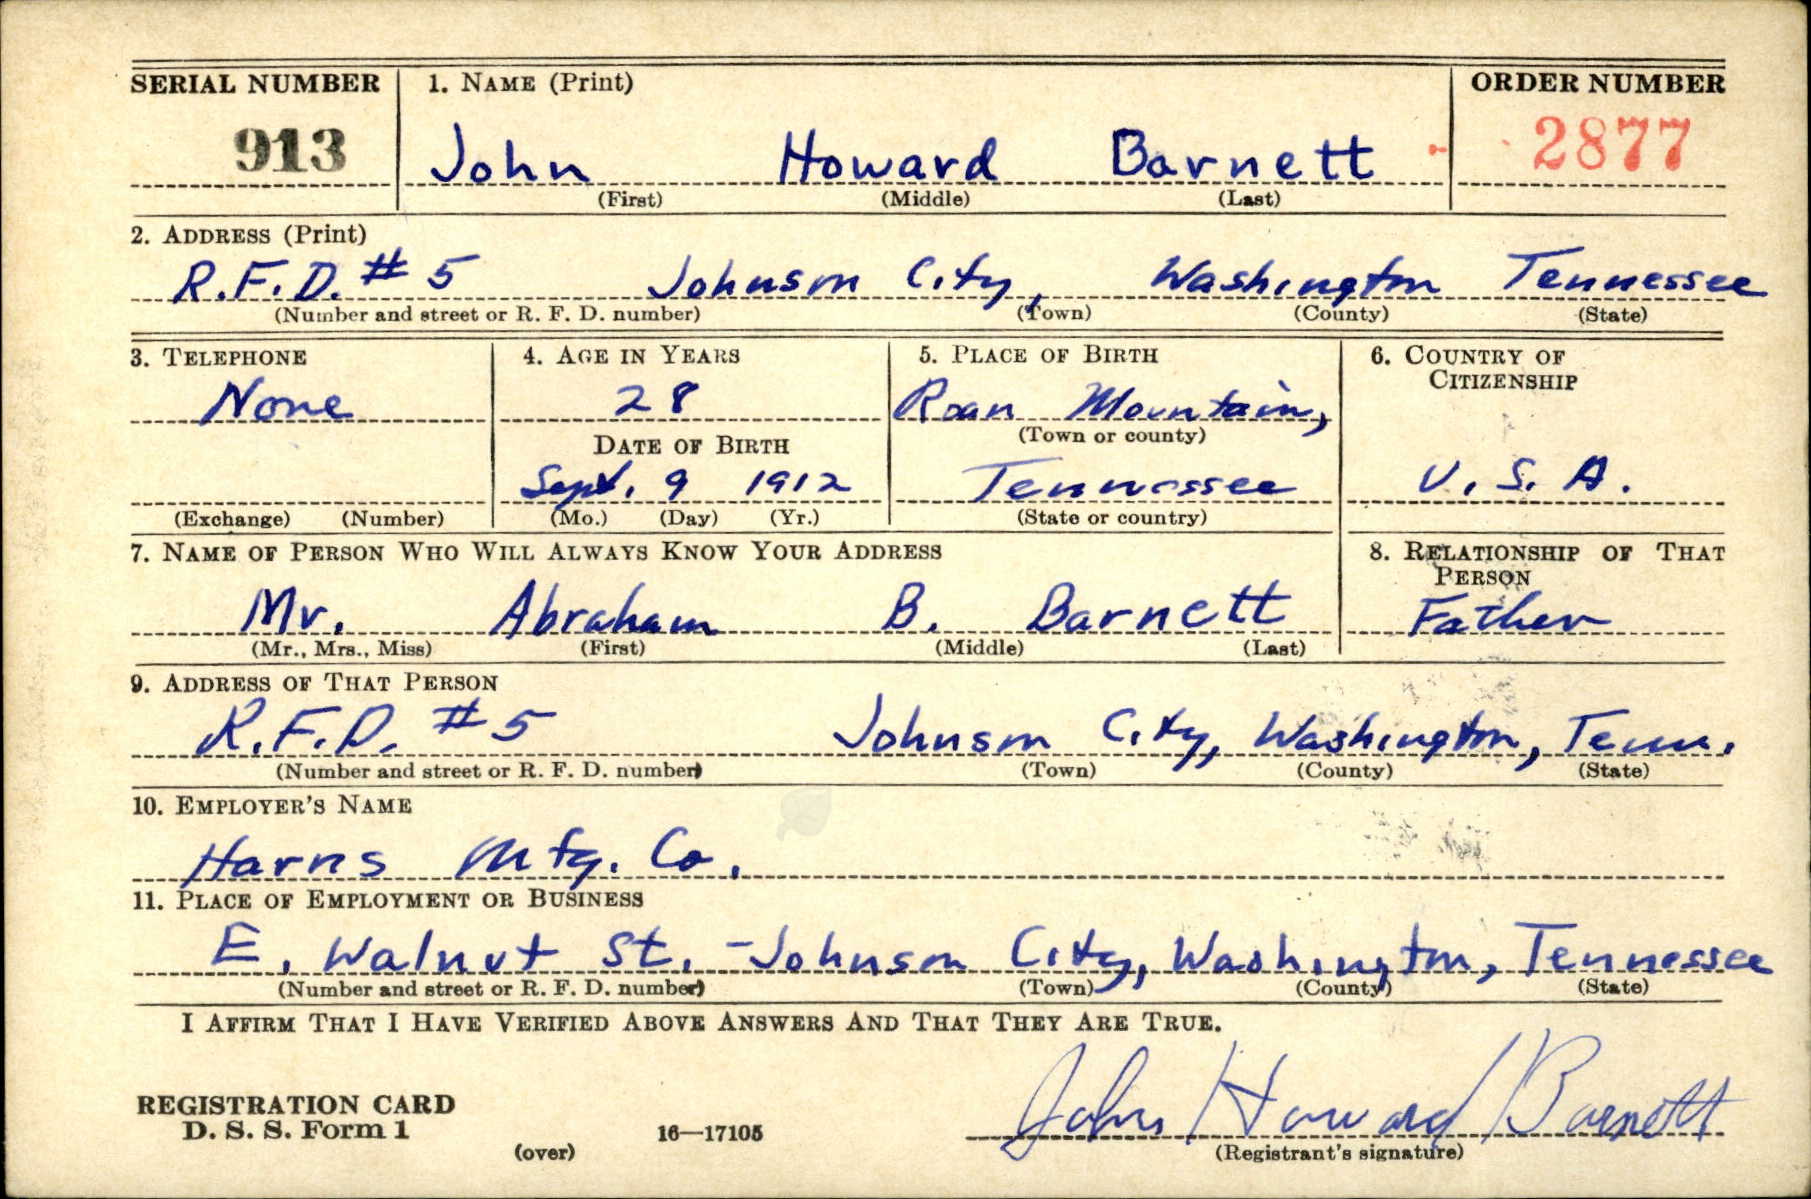 SERIAL NUMBER 1. NAME (Print) ORDER NUMBER
913 John Howard Barnett 2877
(First) (Middle) (Last)
2. ADDRESS (Print)
R.F.D. # 5 Johnson City, Washington Tennessee
(Number and street or R. F. D. number) (Town) (County) (State)
3. TELEPHONE 4. AGE IN YEARS 5. PLACE OF BIRTH 6. COUNTRY OF
CITIZENSHIP
None 28 Roan Mountain,
DATE OF BIRTH (Town or county)
Sept. 9 1912 Tennessee U. S. A.
(Exchange) (Number) (Mo.) (Day) (Yr.) (State or country)
7. NAME OF PERSON WHO WILL ALWAYS KNOW YOUR ADDRESS 8. RELATIONSHIP OF THAT
PERSON
Mr. Abraham B. Barnett Father
(Mr., Mrs., Miss) (First) (Middle) (Last)
9. ADDRESS OF THAT PERSON
R.F.D. #5 Johnson City, Washington, Tenn.
(Number and street or R. F. D. number) (Town) (County) (State)
10. EMPLOYER'S NAME
Harris Mfg. Co.
11. PLACE OF EMPLOYMENT OR BUSINESS
E. Walnut St. - Johnson City, Washington, Tennessee
(Number and street or R. F. D. number) (Town) (County) (State)
I AFFIRM THAT I HAVE VERIFIED ABOVE ANSWERS AND THAT THEY ARE TRUE.
John Howard Barnett
REGISTRATION CARD
D. S. S. Form 1
(over) 16—17105 (Registrant's signature)